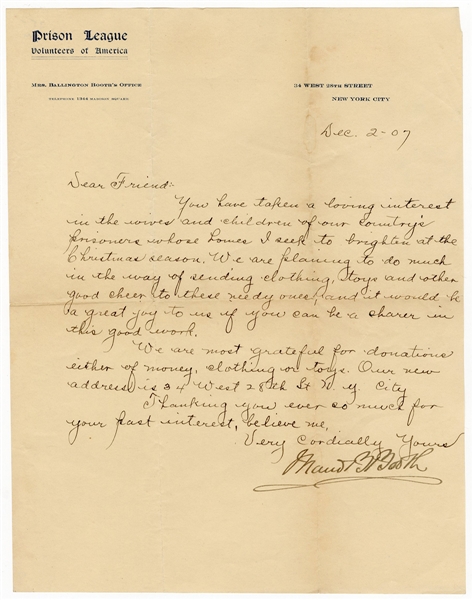 Prison League
Volunteers of America
Mrs. Ballington Booth's Office
34 West 28th Street
New York City
Dec. 2-07
Dear Friend:-
You have taken a loving interest
in the wives and children of our country's
prisoners whose homes I seek to brighten at the
Christmas season. We are planing to do much
in the way of sending clothing, toys and other
good cheer to these needy ones, and it would be
a great joy to us if you can be a sharer in
this good work.
We are most grateful for donations
either of money, clothing or toys. Our new
address is 34 West 28th St N.Y. City
Thanking you ever so much for
your past interest, believe me,
Very Cordially Yours
Maud B Booth